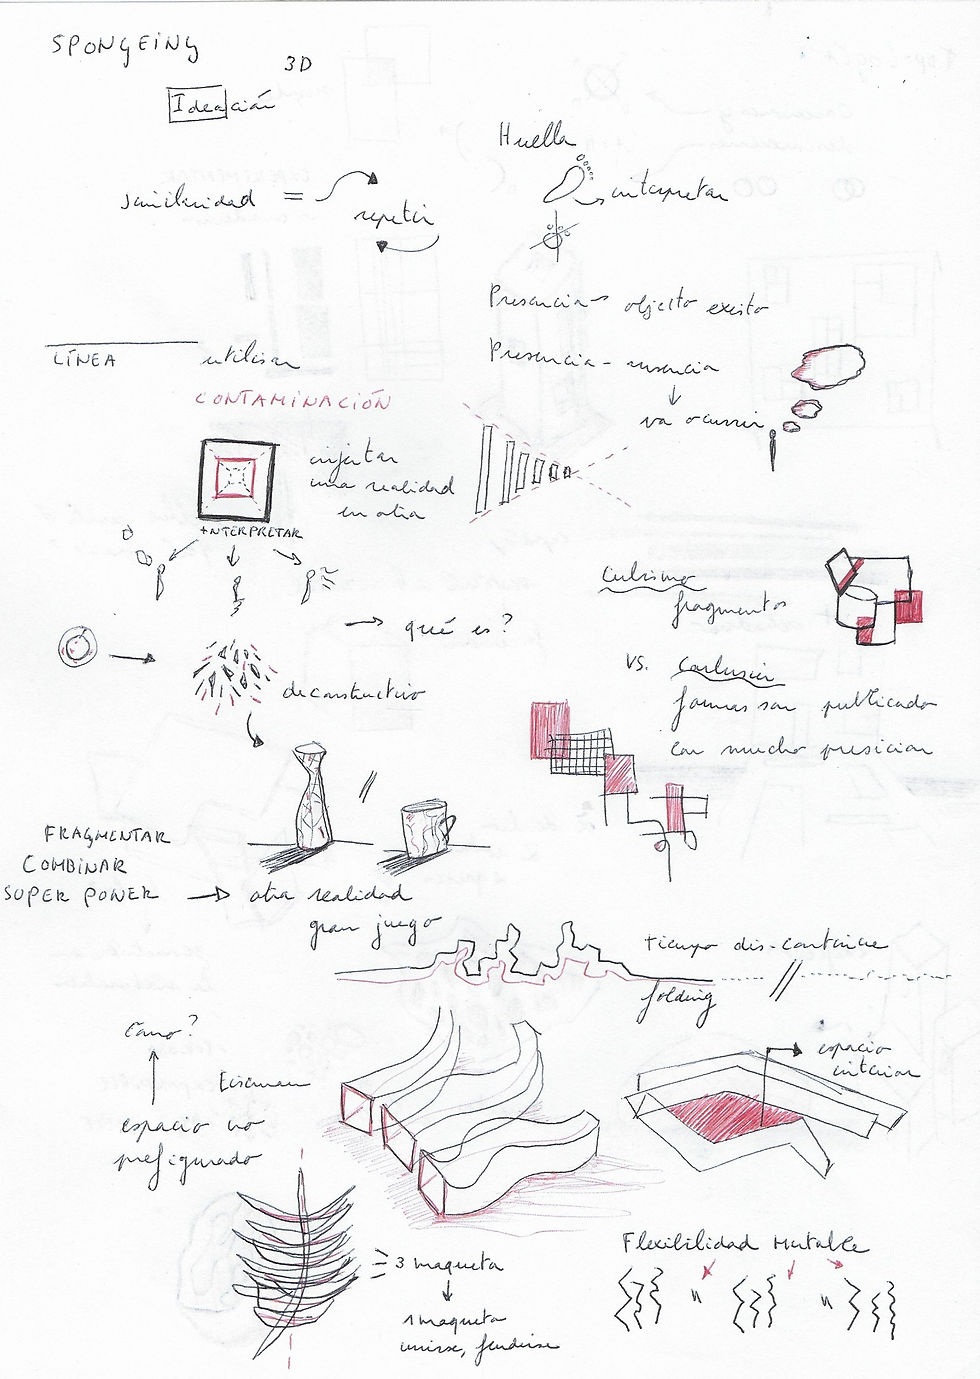 SPONGEING
3D
Ideación
Huella
similaridad =
repetir
interpretar
Presencia → objecto existo
LÍNEA
utilisar
Presencia - ausencia
va ocurrir
CONTAMINACIÓN
injectar
una realidad
en otra
INTERPRETAR
Cubismo
fragmentos
→ qué es?
vs.
deconstructivo
formas son publicado
con mucho presicion
FRAGMENTAR
COMBINAR
SUPER PONER → otra realidad
gran juego
tiempo dis-continue
folding
Como?
espacio
interior
Eisenman
espacio no
prefigurado
Flexibilidad Mutable
3 maqueta
1 maqueta
unirse, fundirse